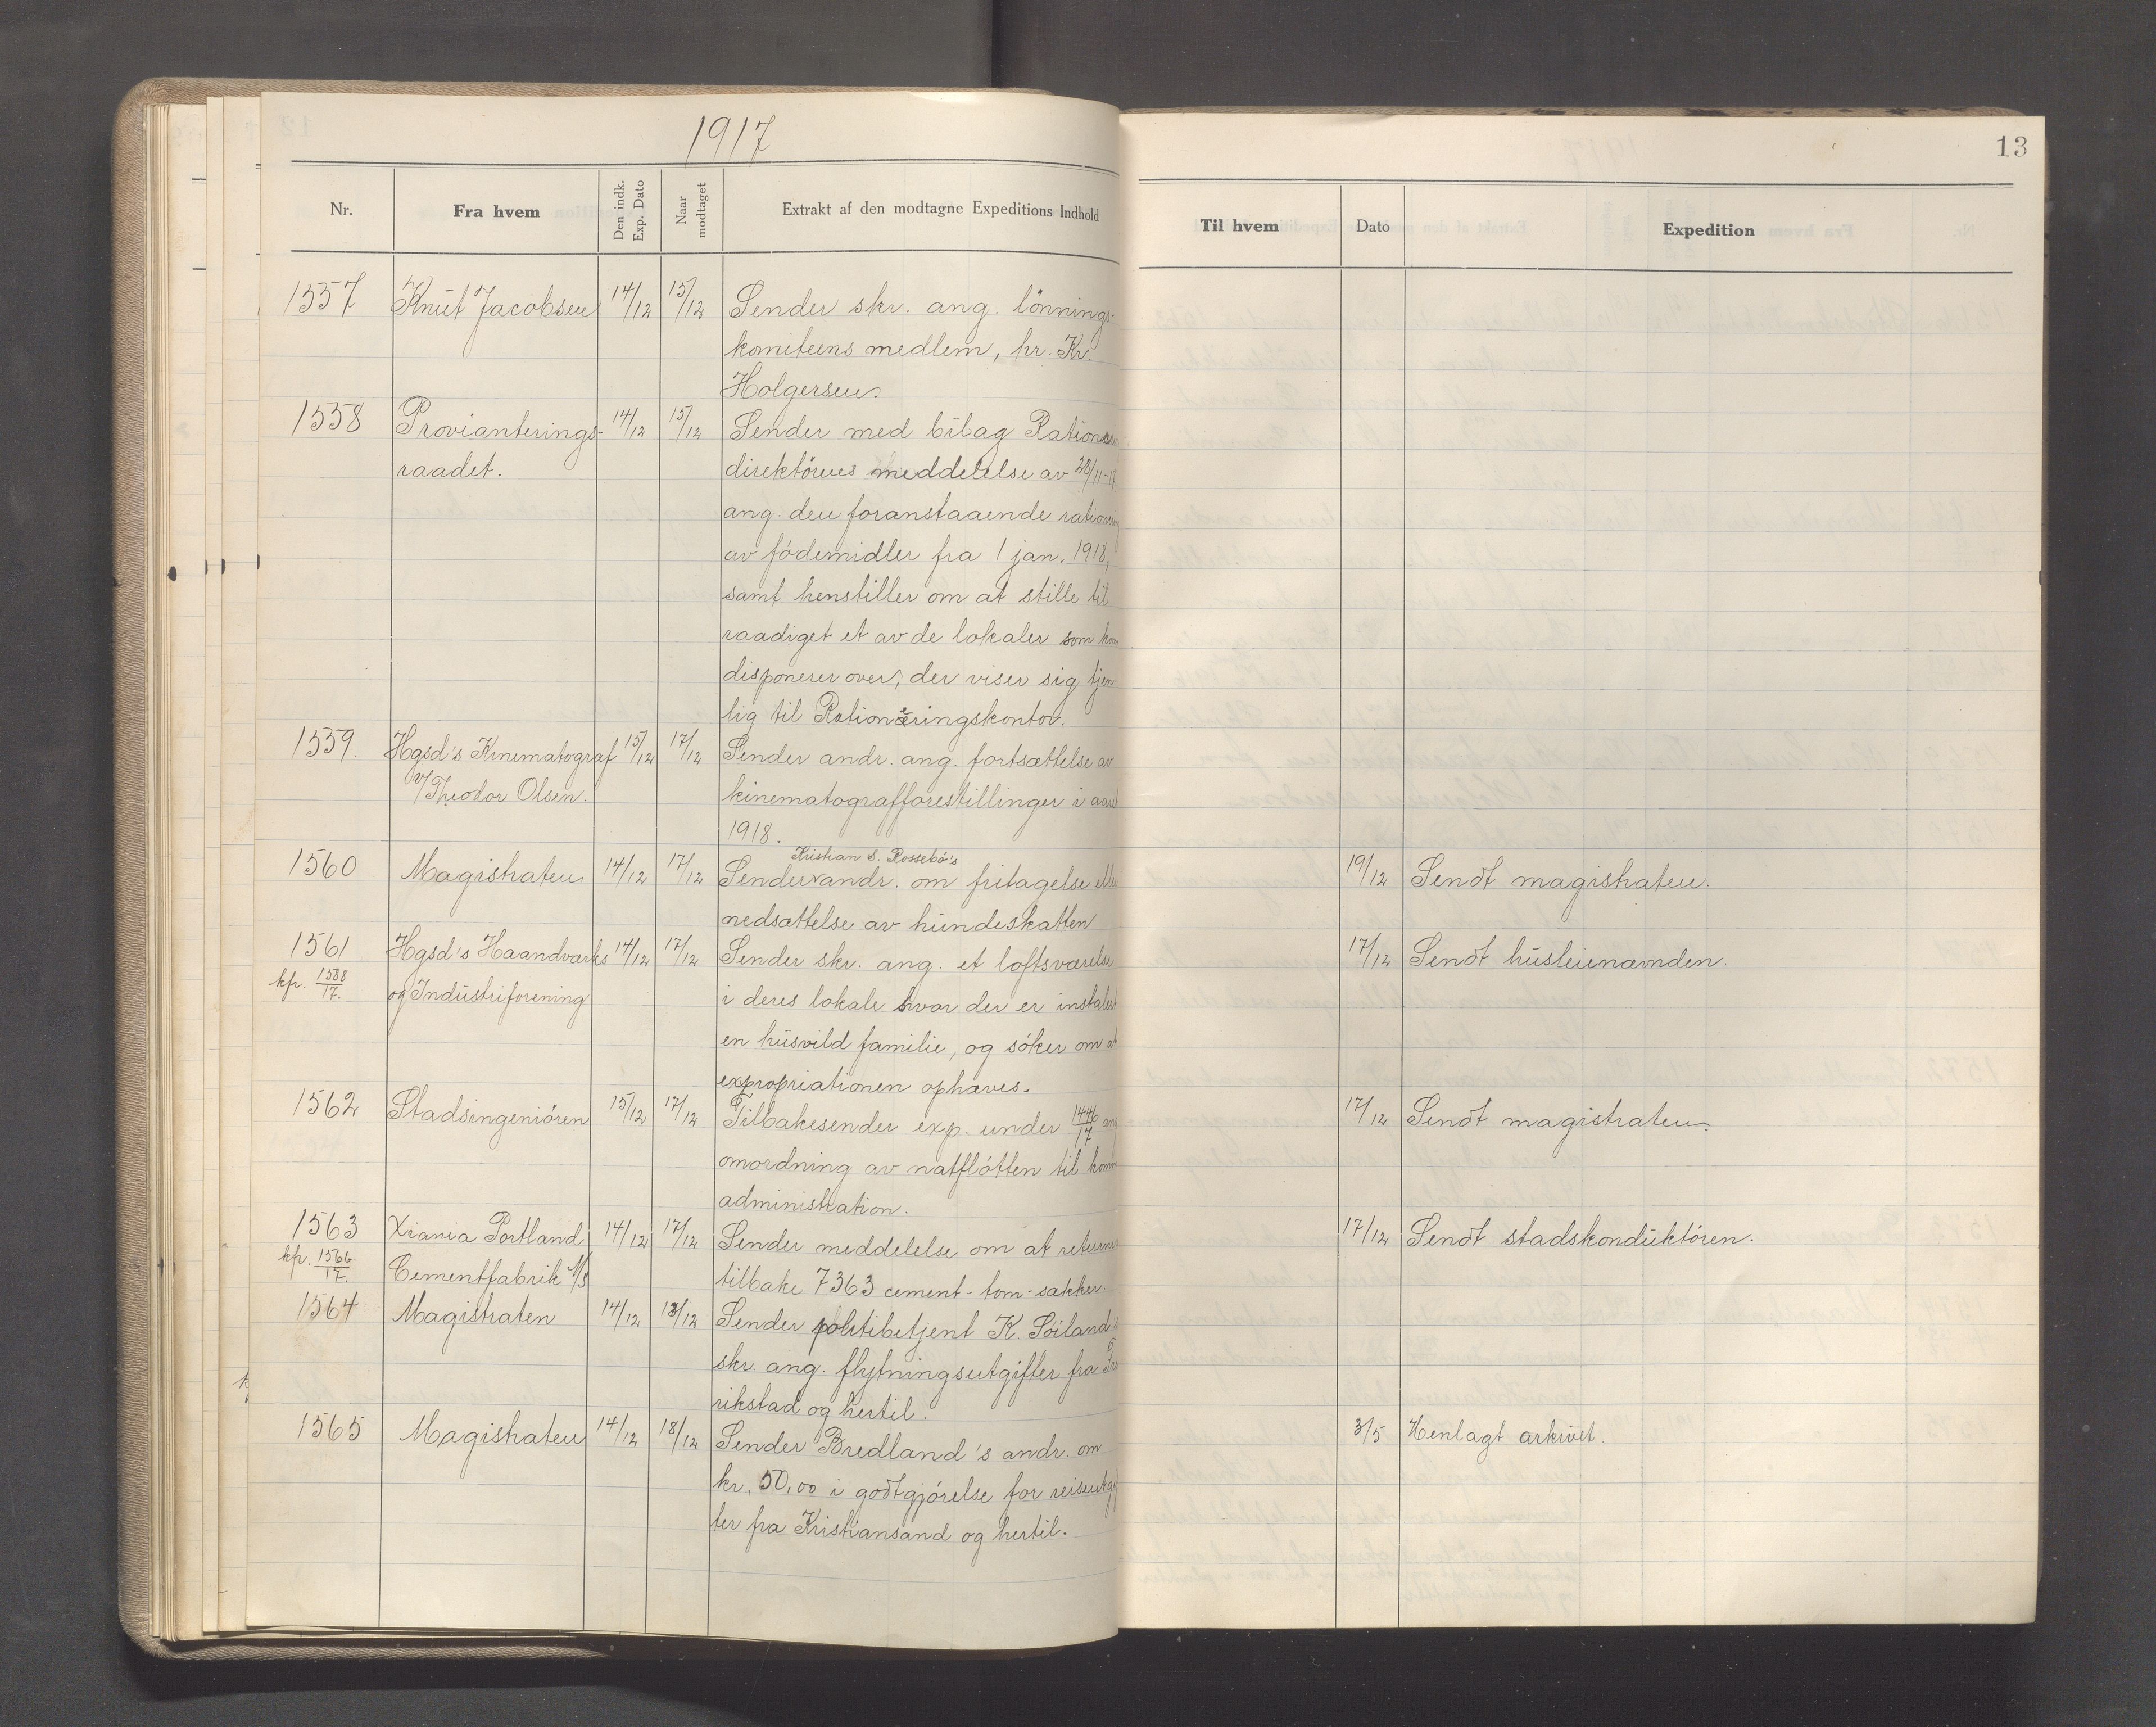 1917
13
Nr.
Fra hvem
Den indk. Exp. Dato
Naar modtaget
Extrakt af den modtagne Expeditions Indhold
Til hvem
Dato
Expedition
1557 Knut Jacobsen 14/12 15/12 Sender skr. ang. lönnings-
komiteens medlem, hr. Kr.
Holgersen.
1558 Provianterings- 14/12 15/12 Sender med bilag
raadet. direktörens meddelelse av 28/11-17
ang. den foranstaaende
av födemidler fra 1 jan. 1918,
samt henstiller om at stille til
raadiget et av de lokaler som
disponerer over, der viser sig tjen-
lig til Rationeringskontor.
1559. Hgsd's Kinematograf 15/12 17/12 Sender andr. ang. fortsættelse av
v/Theodor Olsen. kinematografforestillinger i
1918.
Kristian S. Rossebö's
1560 Magistraten 14/12 17/12 Sender andr. om fritagelse 19/12 Sendt magistraten.
nedsættelse av hundeskatten
1561 Hgsd's Haandværks 14/12 17/12 Sender skr. ang. et loftsværelse 17/12 Sendt husleienævnden.
kfr. 1588/17. og Industriforening i deres lokale hvor der er
en husvild familie, og söker om at
expropriationen ophæves.
1562 Stadsingeniören 15/12 17/12 Tilbakesender exp. under 1446/17 17/12 Sendt magistraten.
omordning av natflótten til
administration.
1563 Xiania Portland 14/12 17/12 Sender meddelelse om at 17/12 Sendt stadskonduktören.
kfr. 1566/17. Cementfabrik A/S tilbake 7363 cement-tom-sækker.
1564 Magistraten 14/12 18/12 Sender politibetjent K. Söiland
skr. ang. flytningsutgifter fra
rikstad og hertil.
1565 Magistraten 14/12 18/12 Sender Bredland's andr. om 3/5 Henlagt arkivet.
kr. 50,00 i godtgjörelse for
ter fra Kristiansand og hertil.